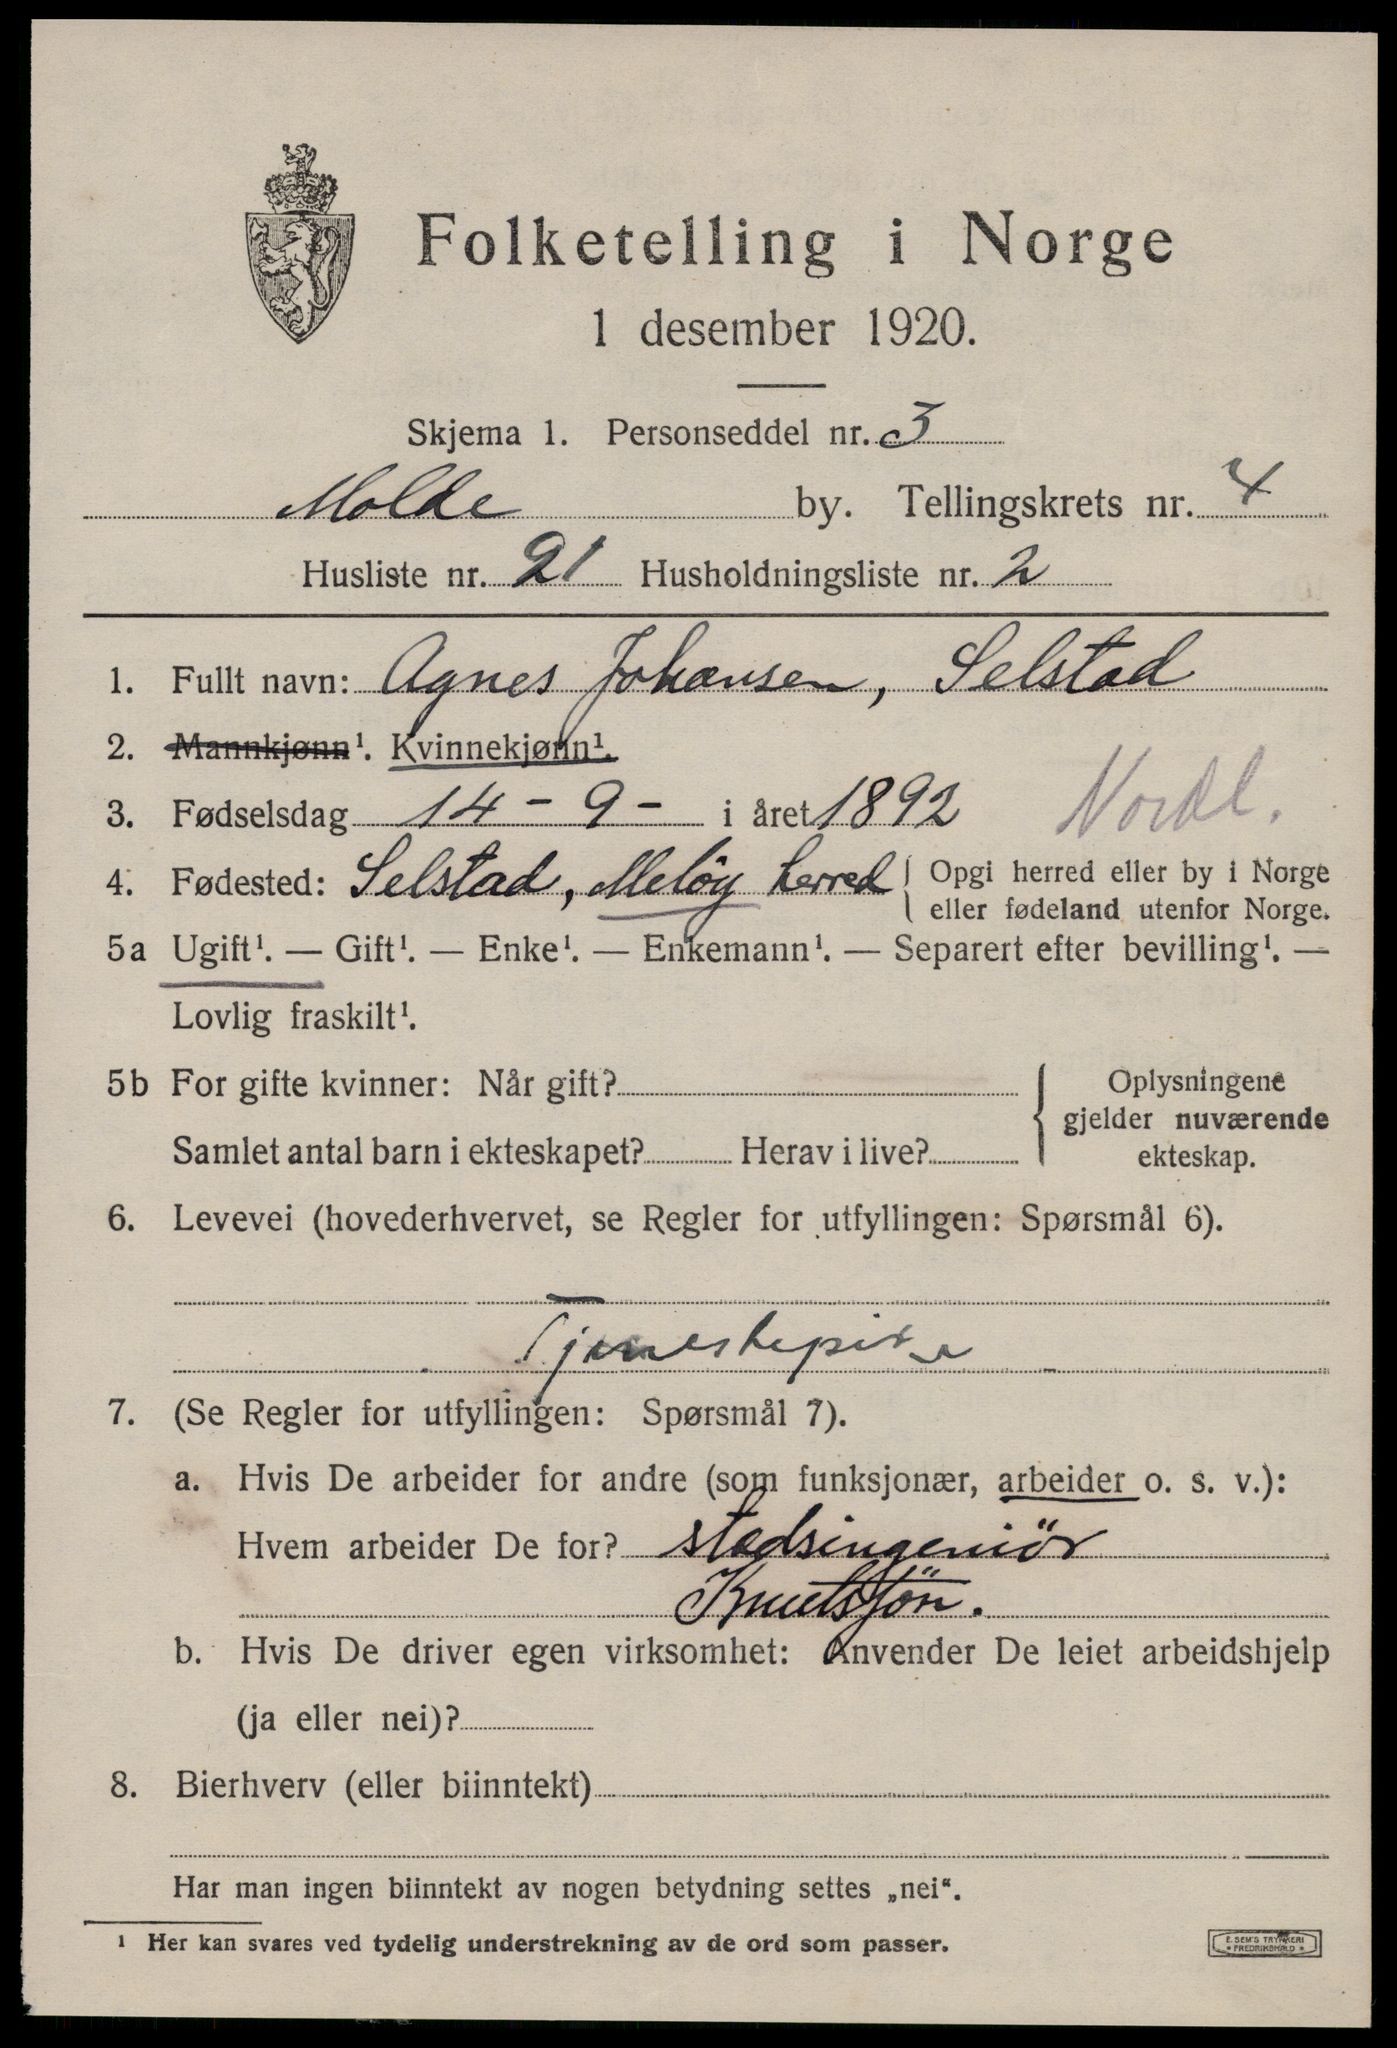 Folketelling i Norge
1 desember 1920.
Skjema 1. Personseddel nr. 3
Molde by. Tellingskrets nr. 4
Husliste nr. 21 Husholdningsliste nr. 2
1. Fullt navn: Agnes Johansen, Selstad
2. Mannkjønn¹. Kvinnekjønn¹.
3. Fødselsdag 14 - 9 - i året 1892 Nordl.
4. Fødested: Selstad, Melöy herred { Opgi herred eller by i Norge
eller fødeland utenfor Norge.
5a Ugift¹. — Gift¹. — Enke¹. — Enkemann¹. — Separert efter bevilling¹. —
Lovlig fraskilt¹.
5b For gifte kvinner: Når gift?
Samlet antal barn i ekteskapet? Herav i live?
{ Oplysningene
gjelder nuværende
ekteskap.
6. Levevei (hovederhvervet, se Regler for utfyllingen: Spørsmål 6).
Tjenestepike
7. (Se Regler for utfyllingen: Spørsmål 7).
a. Hvis De arbeider for andre (som funksjonær, arbeider o. s. v.):
Hvem arbeider De for? stadsingeniör
Knutsjön.
b. Hvis De driver egen virksomhet: Anvender De leiet arbeidshjelp
(ja eller nei)?
8. Bierhverv (eller biinntekt)
Har man ingen biinntekt av nogen betydning settes „nei“.
¹ Her kan svares ved tydelig understrekning av de ord som passer.
E. SEM'S TRYKKERI
* FREDRIKSHALD *